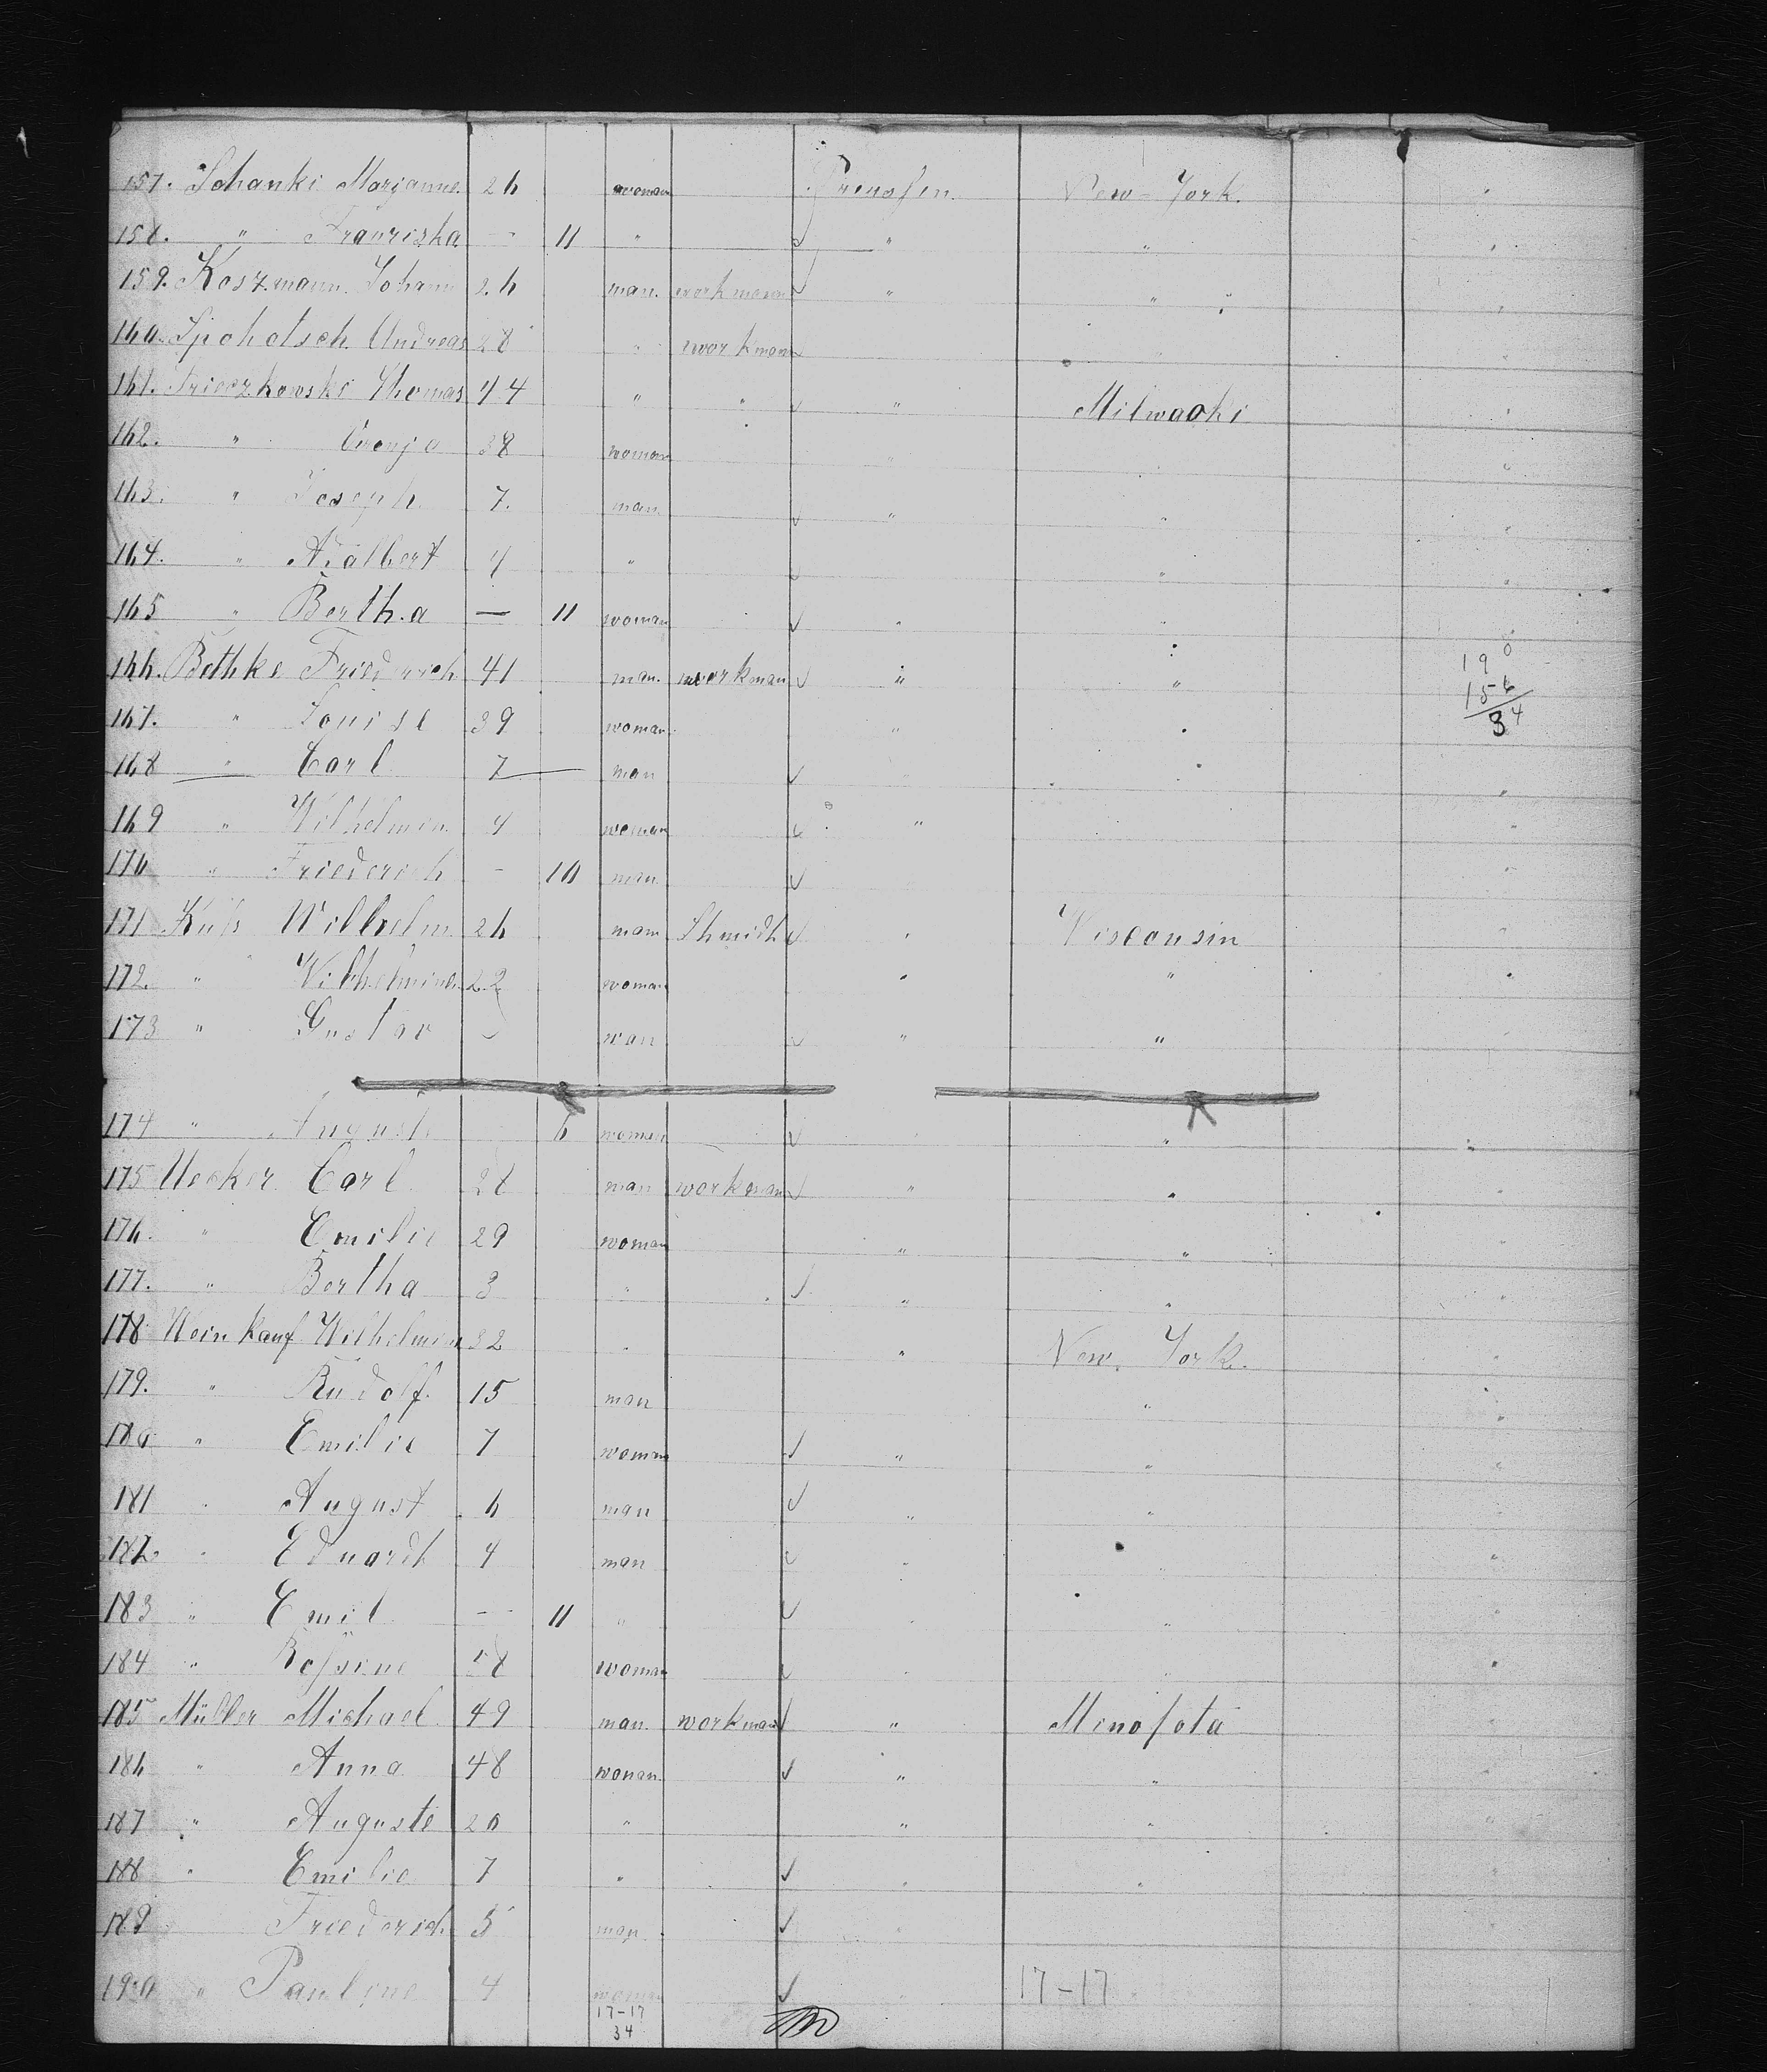 157. Schanki Marjanne. 26 woman Preussen. New-York.
158. " Franziska — 11 " " "
159. Koszmann Johann 26 man. workmann " "
160. Spohotsch Andreas 28 " workman "
161. Trieczkowski Thomas 44 " " " Milwaoki
162. " 38 woman "
163. " Joseph 7. man. " "
164. " Adalbert 4 " "
165 " Bertha — 11 woman " "
166. Bethke Friederich 41 man. workman " "
190
156
34
167. " Louise 39 woman " "
168 " Carl 7 man
169 " Wilhelmin 4 woman "
170 " Friederich - 10 man
171 Kuss Wilhelm 26 man Shmidh " Wisconsin
172. " Wilhelmine 22 woman " "
173 " Gustav man " "
174 " August 6 woman "
175 Uecker Carl 28 man workman " "
176. " Emilie 29 woman " "
177. " Bertha 3 " " "
178 Weinkauf Wilhelmin 32 " " New. York.
179. " Rudolf. 15 man "
180 " Emilie 7 woman " "
181 " August 6 man " "
182. " Eduardt 4 man "
183 " Emil — 11 " "
184 " Rossine 58 woman "
185 Müller Michael 49 man. workman " Minosota
186 " Anna 48 wonan. " "
187 " Auguste 20 " " "
188 " Emilie 7 " " "
189 Friederich 5 man "
190 " Pauline 4 woman 17-17
17-17
34